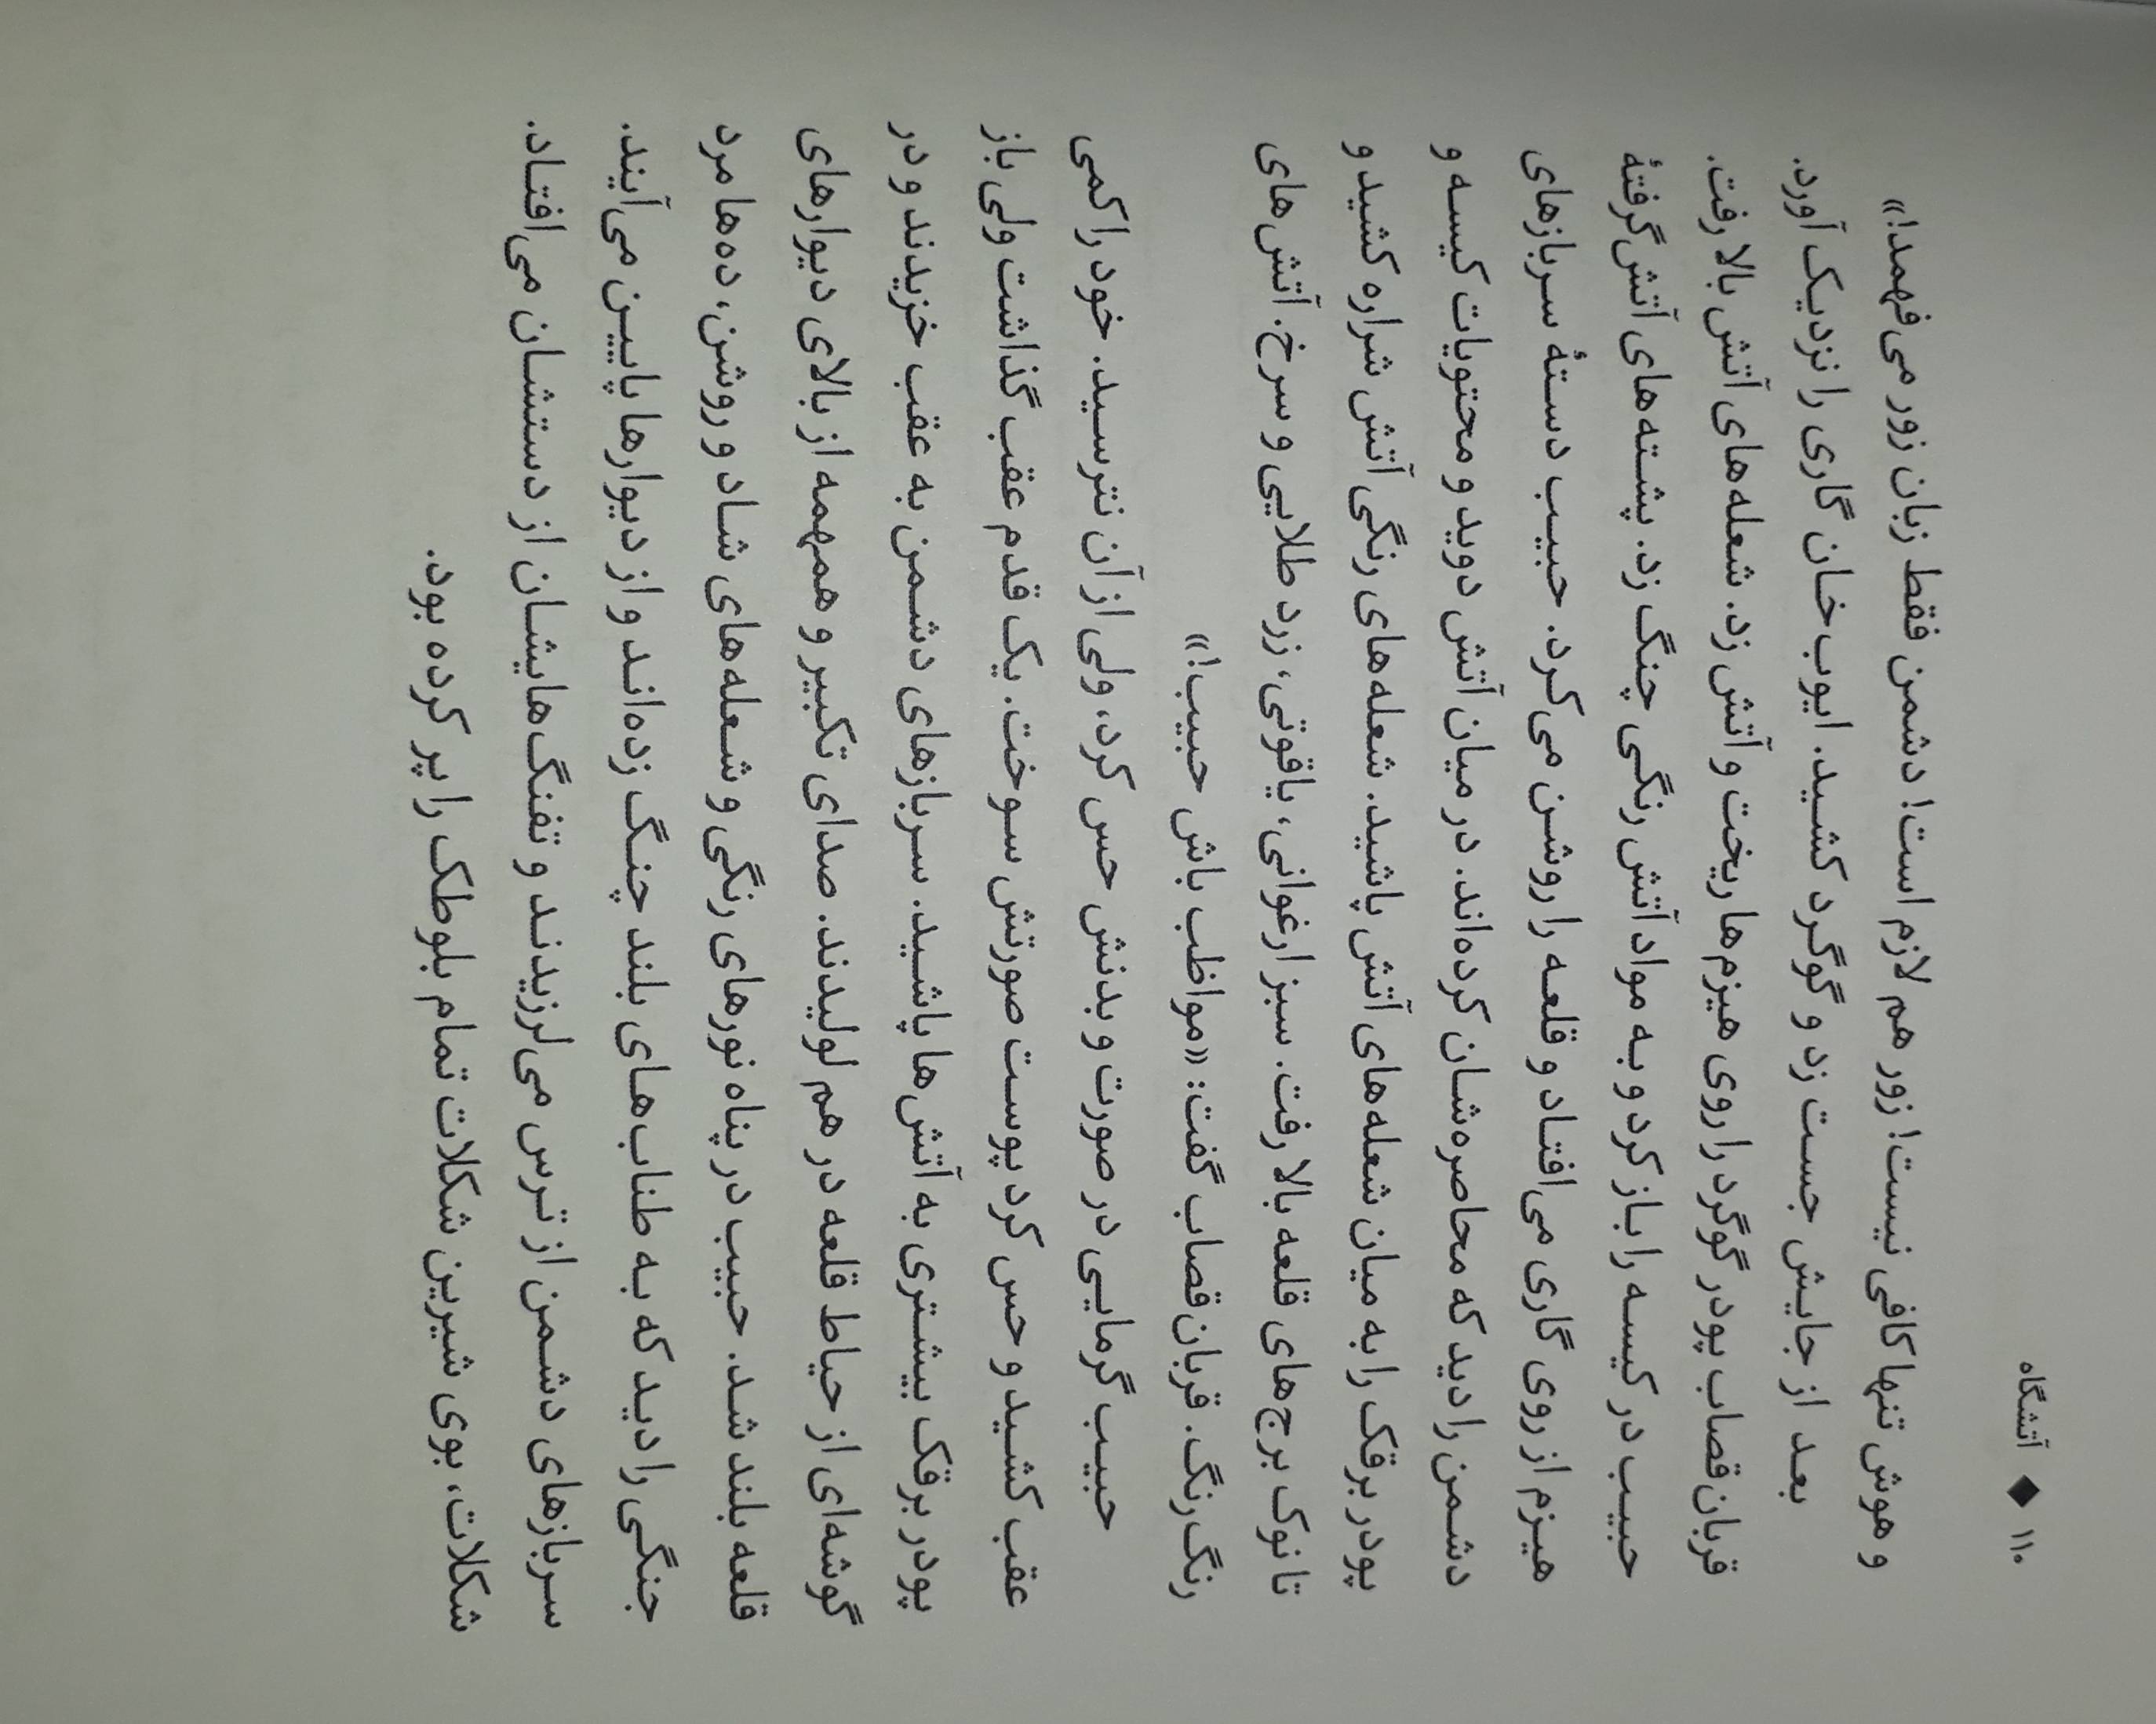 ۱۱۰ ◆ آتشگاه
و هوش تنها کافی نیست! زور هم لازم است! دشمن فقط زبان زور می‌فهمد!»
بعد از جایش جست زد و گوگرد کشید. ایوب‌خان گاری را نزدیک آورد.
قربان‌قصاب پودر گوگرد را روی هیزم‌ها ریخت و آتش زد. شعله‌های آتش بالا رفت.
حبیب در کیسه را باز کرد و به مواد آتش‌رنگی چنگ زد. پشته‌های آتش‌گرفتهٔ
هیزم از روی گاری می‌افتاد و قلعه را روشن می‌کرد. حبیب دستهٔ سربازهای
دشمن را دید که محاصره‌شان کرده‌اند. در میان آتش دوید و محتویات کیسه و
پودر برقک را به میان شعله‌های آتش پاشید. شعله‌های رنگی آتش شراره کشید و
تا نوک برج‌های قلعه بالا رفت. سبز ارغوانی، یاقوتی، زرد طلایی و سرخ. آتش‌های
رنگ‌رنگ. قربان‌قصاب گفت: «مواظب باش حبیب!»
حبیب گرمایی در صورت و بدنش حس کرد، ولی از آن نترسید. خود را کمی
عقب کشید و حس کرد پوست صورتش سوخت. یک قدم عقب گذاشت ولی باز
پودر برقک بیشتری به آتش‌ها پاشید. سربازهای دشمن به عقب خزیدند و در
گوشه‌ای از حیاط قلعه در هم لولیدند. صدای تکبیر و همهمه از بالای دیوارهای
قلعه بلند شد. حبیب در پناه نورهای رنگی و شعله‌های شاد و روشن، ده‌ها مرد
جنگی را دید که به طناب‌های بلند چنگ زده‌اند و از دیوارها پایین می‌آیند.
سربازهای دشمن از ترس می‌لرزیدند و تفنگ‌هایشان از دستشان می‌افتاد.
شکلات، بوی شیرین شکلات تمام بلوطک را پر کرده بود.